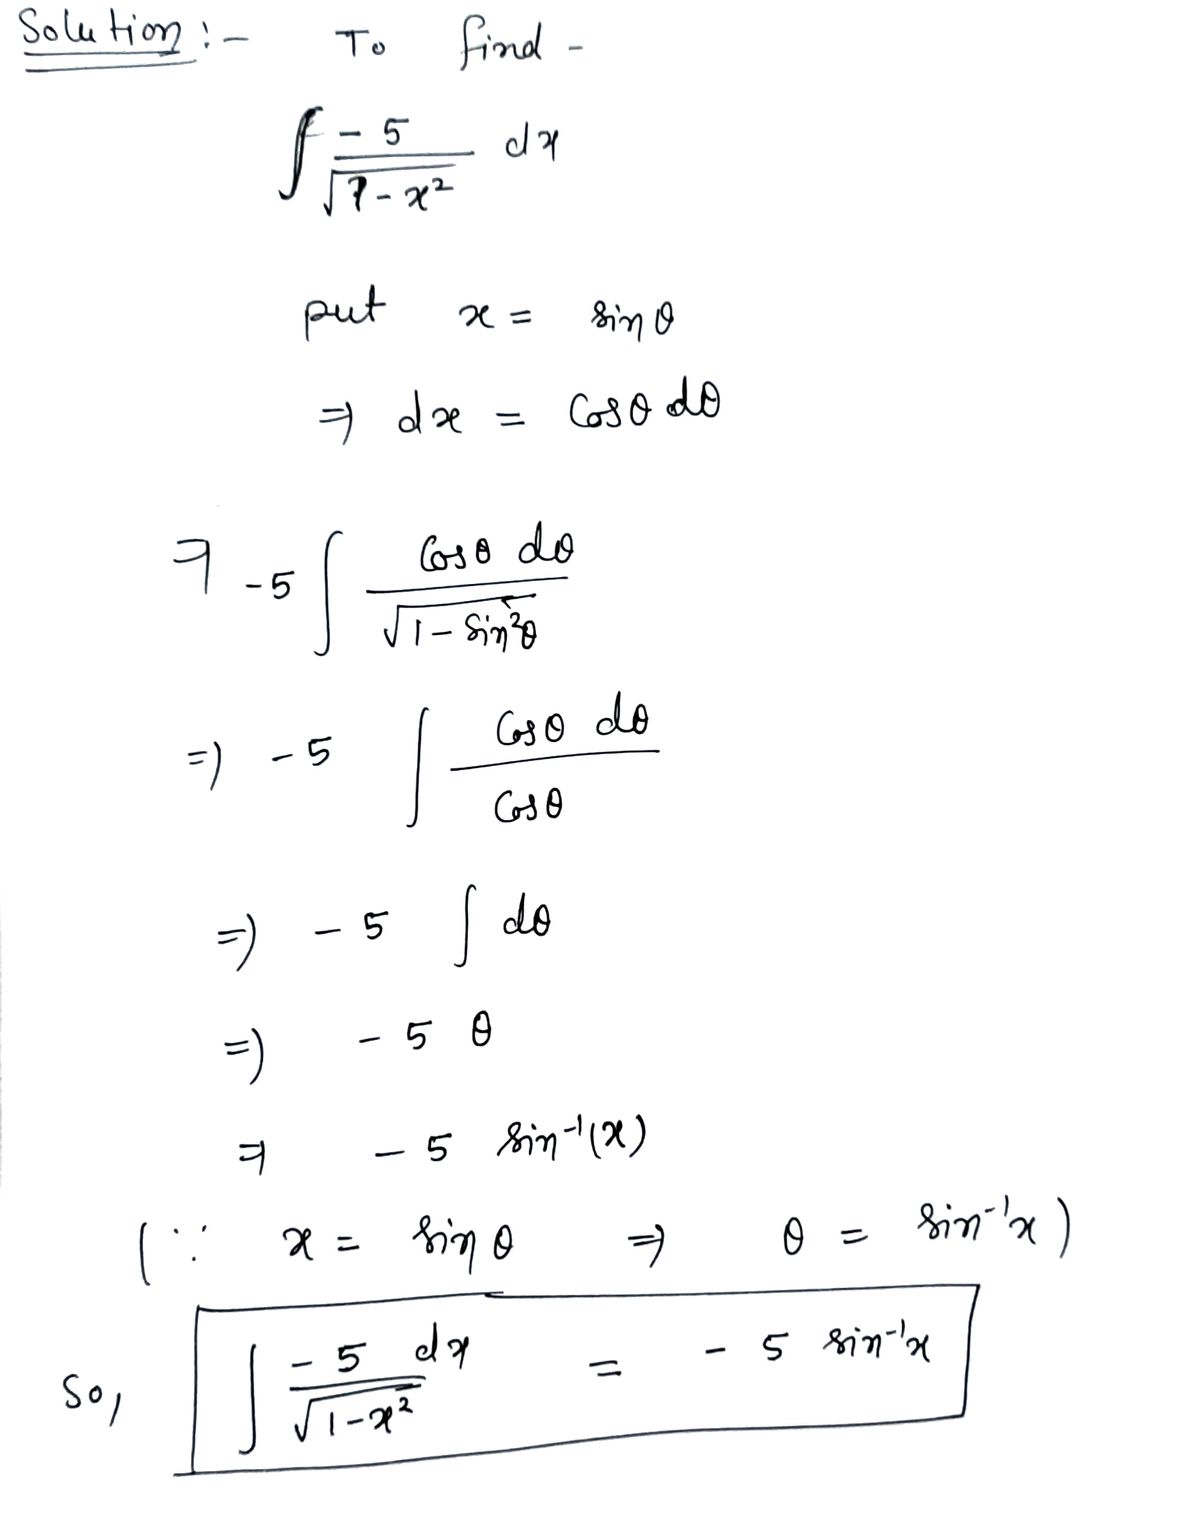 Solution :- To find -
∫ -5 / √(7 - x²) dx
put x = sin θ
⇒ dx = Cos θ dθ
⇒ -5 ∫ Cos θ dθ / √(1 - Sin²θ)
⇒ -5 ∫ Cos θ dθ / Cos θ
⇒ -5 ∫ dθ
⇒ -5 θ
⇒ -5 sin⁻¹(x)
(∵ x = sin θ ⇒ θ = sin⁻¹x)
So, ∫ -5 dx / √(1-x²) = -5 sin⁻¹x